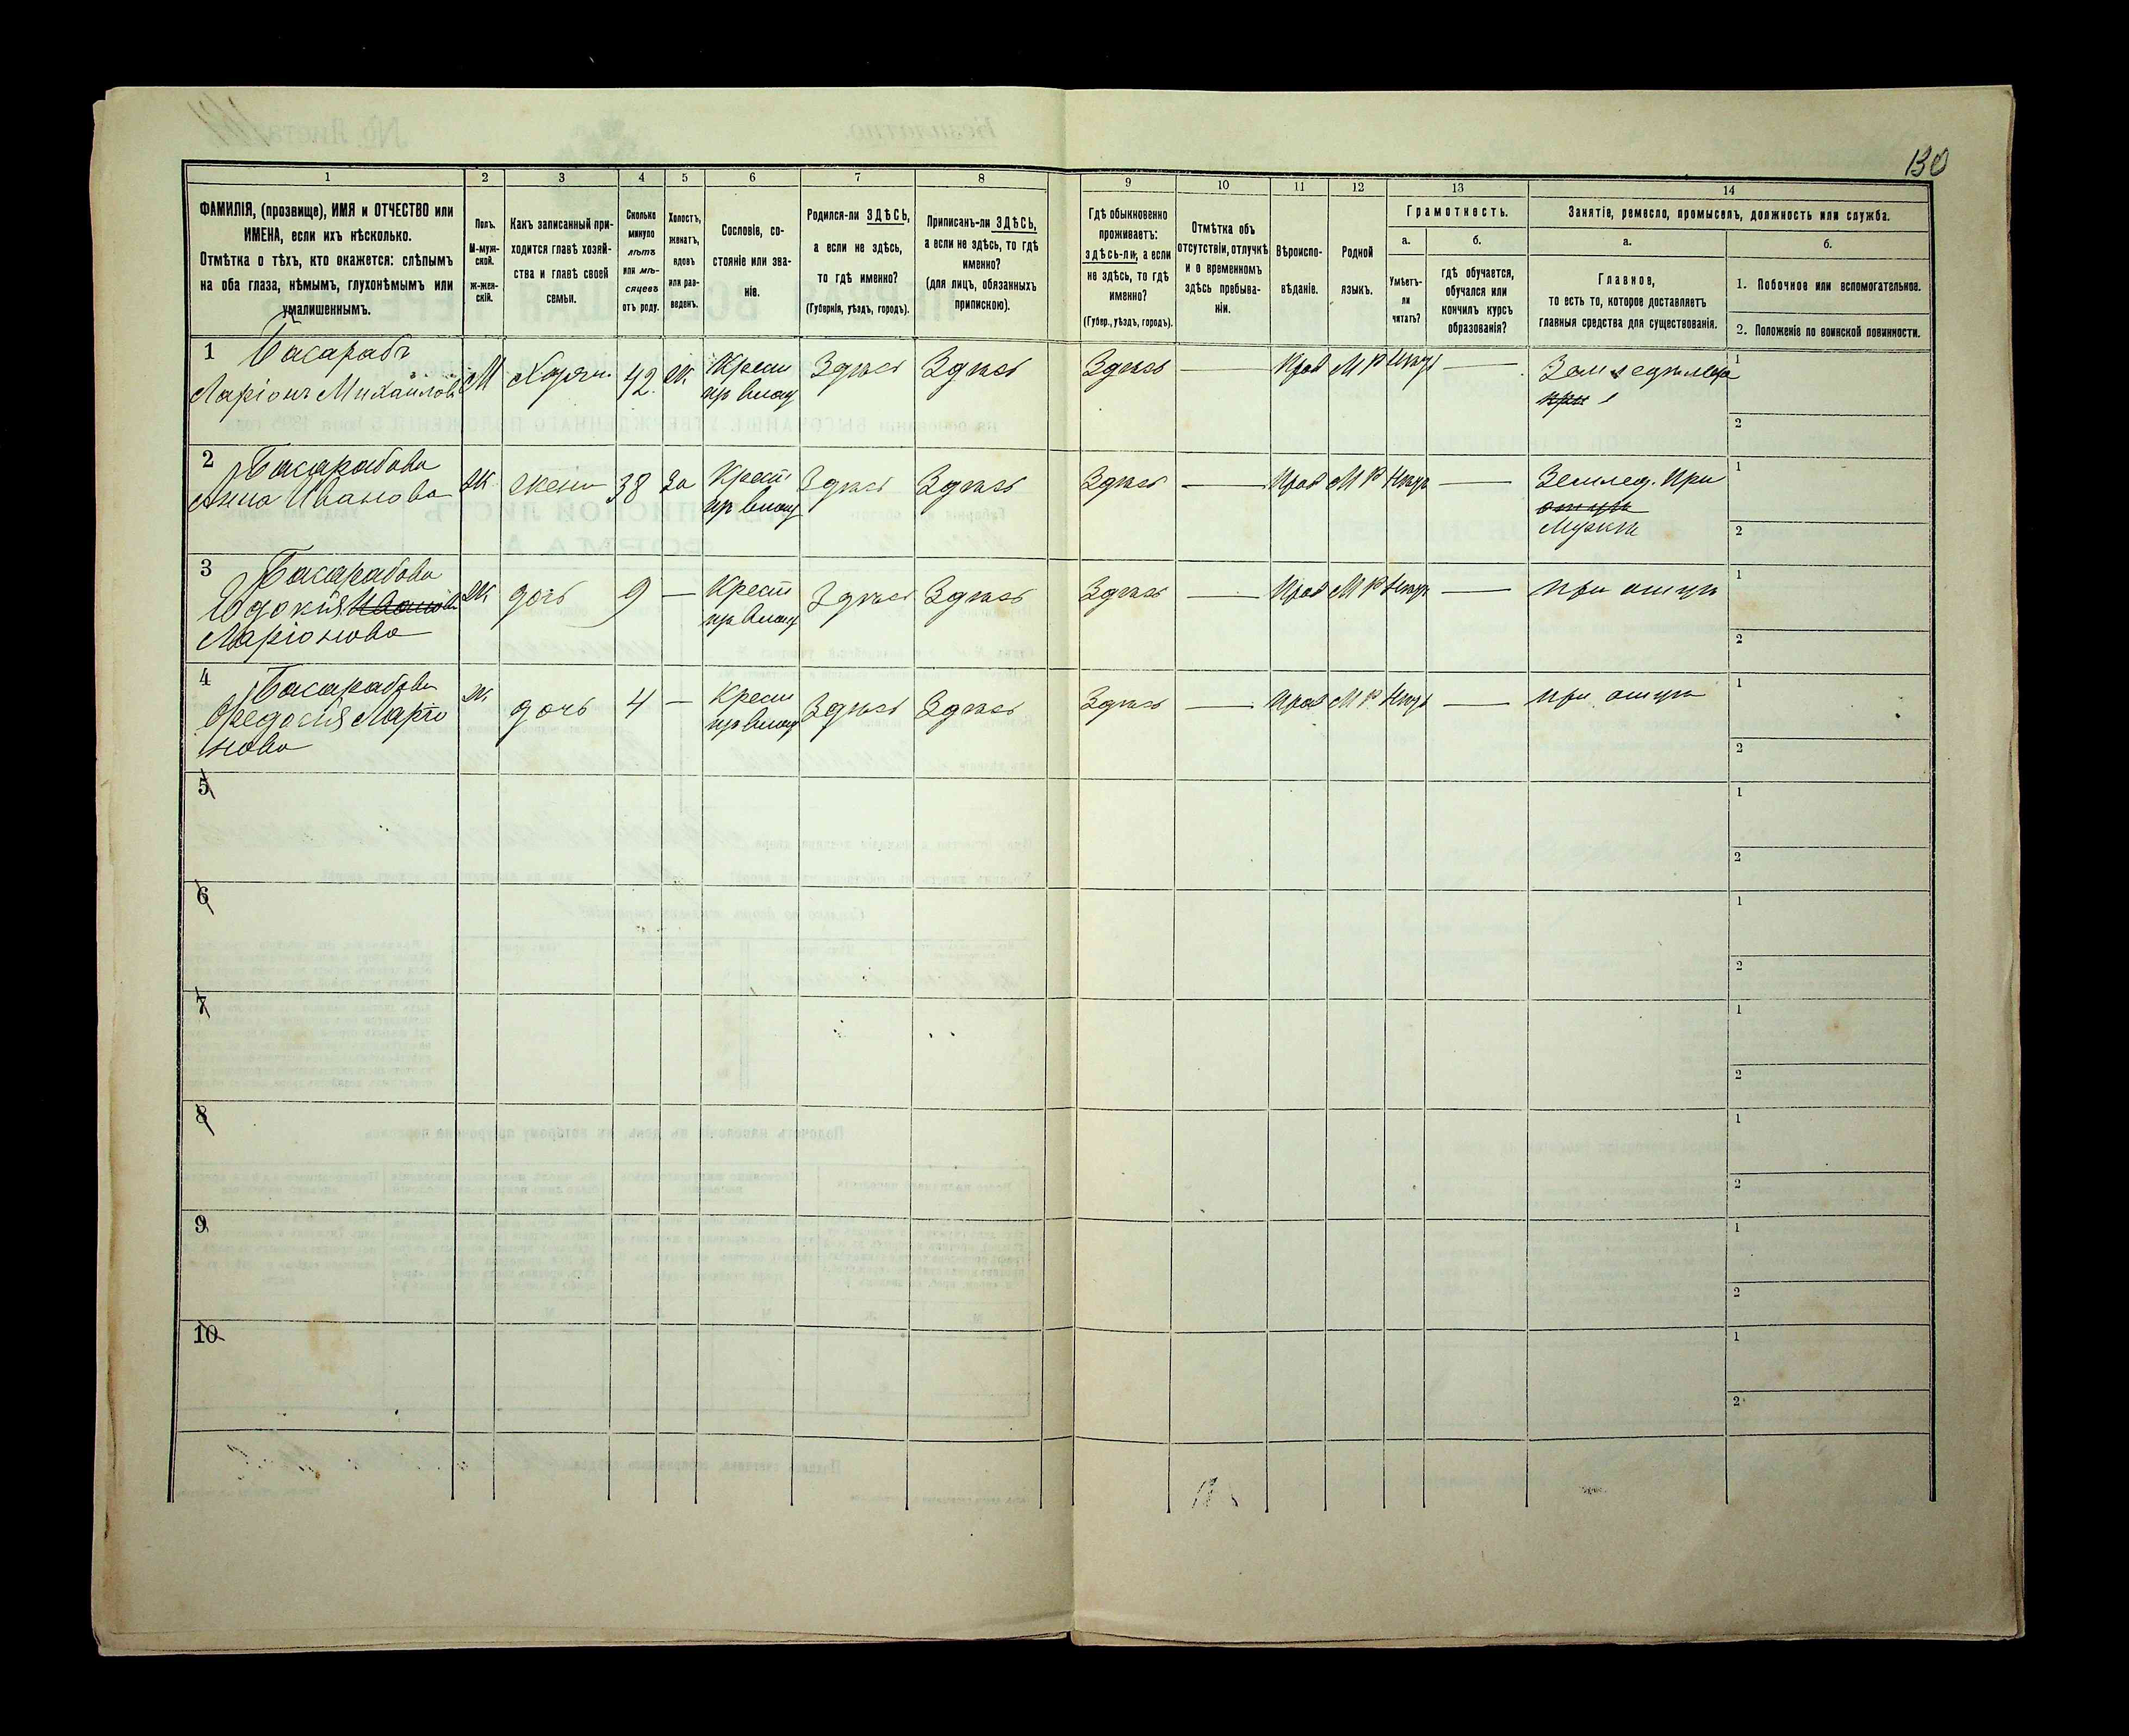 130
1 2 3 4 5 6 7 8 9 10 11 12 13 14
ФАМИЛІЯ, (прозвище), ИМЯ и ОТЧЕСТВО или
ИМЕНА, если ихъ нѣсколько.
Отмѣтка о тѣхъ, кто окажется: слѣпымъ
на оба глаза, нѣмымъ, глухонѣмымъ или
умалишеннымъ.
Полъ.
М-муж-
ской.
ж-жен-
скій.
Какъ записанный при-
ходится главѣ хозяй-
ства и главѣ своей
семьи.
Сколько
минуло
лѣтъ
или мѣ-
сяцевъ
отъ роду.
Холостъ,
женатъ,
вдовъ
или раз-
веденъ.
Сословіе, со-
стояніе или зва-
ніе.
Родился-ли ЗДѢСЬ,
а если не здѣсь,
то гдѣ именно?
(Губернія, уѣздъ, городъ).
Приписанъ-ли ЗДѢСЬ,
а если не здѣсь, то гдѣ
именно?
(для лицъ, обязанныхъ
припискою).
Гдѣ обыкновенно
проживаетъ:
здѣсь-ли, а если
не здѣсь, то гдѣ
именно?
(Губер., уѣздъ, городъ).
Отмѣтка объ
отсутствіи, отлучкѣ
и о временномъ
здѣсь пребыва-
ніи.
Вѣроиспо-
вѣданіе.
Родной
языкъ.
Грамотность.
а.
Умѣетъ-
ли
читать?
б.
гдѣ обучается,
обучался или
кончилъ курсъ
образованія?
Занятіе, ремесло, промыселъ, должность или служба.
а.
Главное,
то есть то, которое доставляетъ
главныя средства для существованія.
б.
1. Побочное или вспомогательное.
2. Положеніе по воинской повинности.
1 Басарабъ
Ларіонъ Михайловъ
М
42
Ж
Крест
Здѣсь
Здѣсь
Здѣсь
—
Прав
нѣтъ
—
при
1
2
2 Басарабова
Анна Иванова
Ж
жена
38
За
Крест
Здѣсь
Здѣсь
Здѣсь
—
Прав
нѣтъ
—
Землед. при
отцѣ
Мужѣ
1
2
3 Басарабова
Евдокія Иванов
Ларіонова
Ж
дочь
9
—
Крест
Здѣсь
Здѣсь
Здѣсь
—
Прав
нѣтъ
—
при отцѣ
1
2
4 Басарабова
Федосія Ларіо
нова
Ж
дочь
4
—
Крест
Здѣсь
Здѣсь
Здѣсь
—
Прав
нѣтъ
—
при отцѣ
1
2
5
1
2
6
1
2
7
1
2
8
1
2
9
1
2
10
1
2